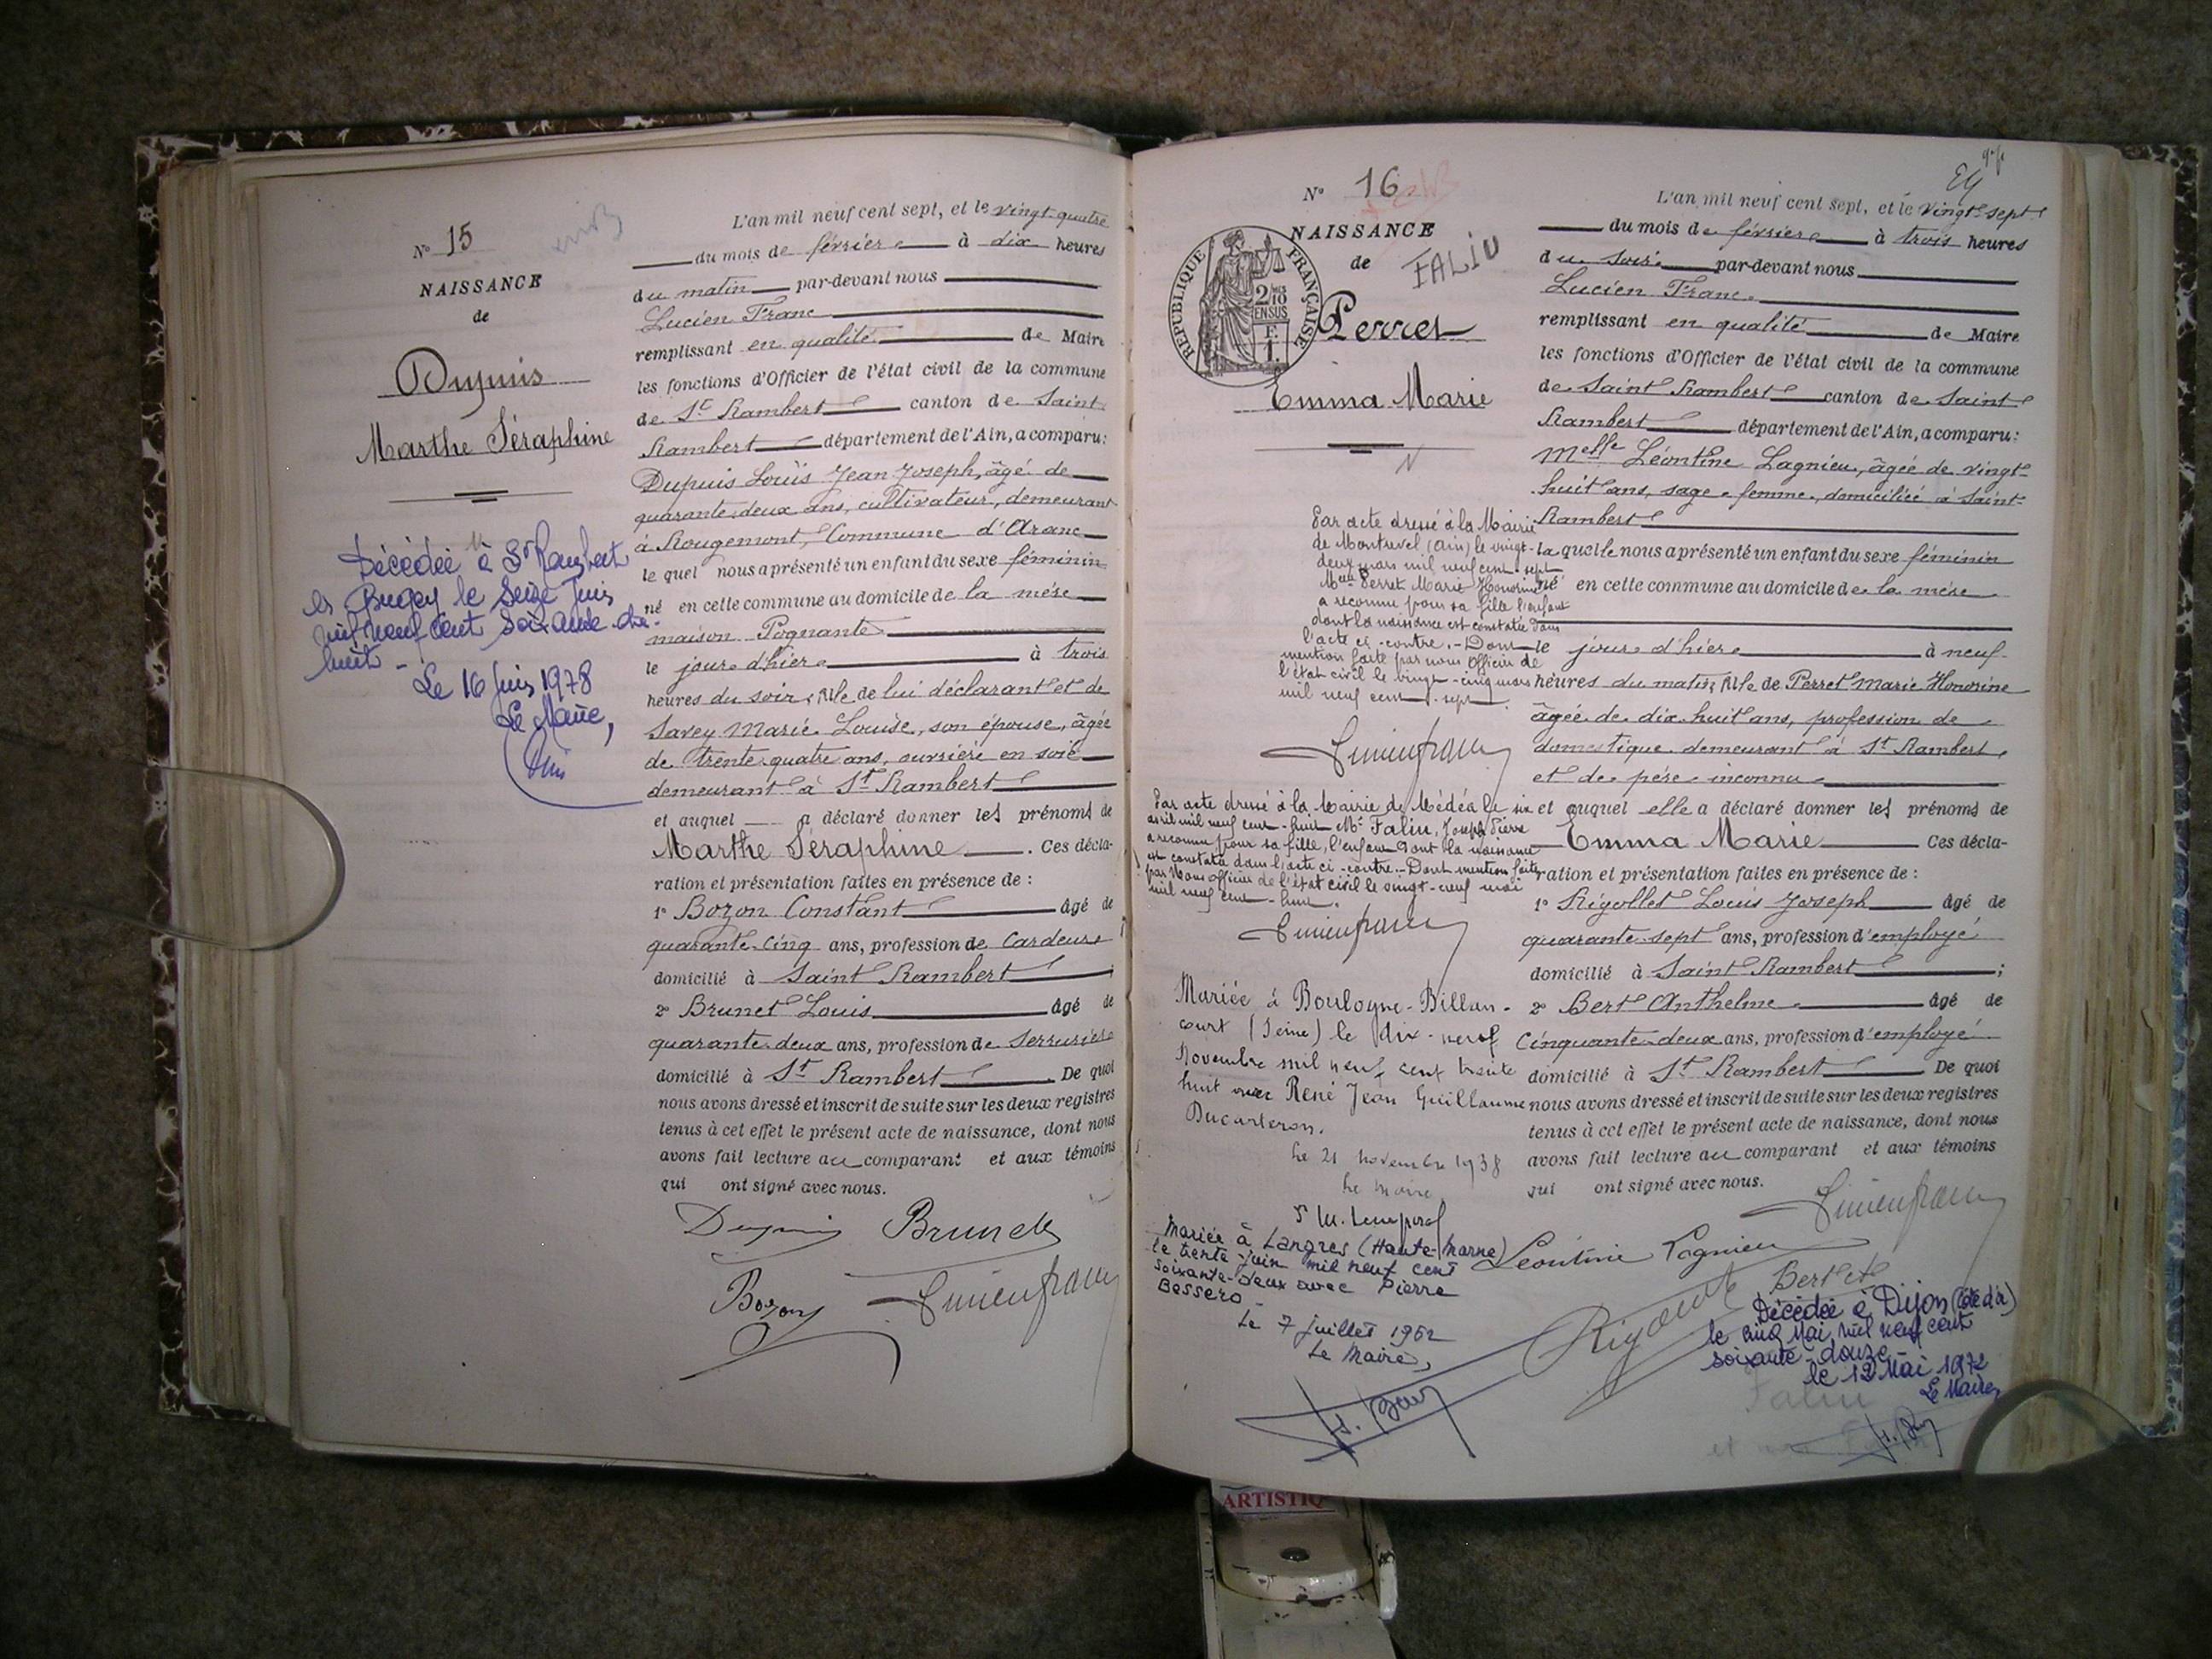 N° 15
NAISSANCE
de
Dupuis
Marthe Séraphine
Décédée à St Rambert
en Bugey le Seize Juin
mil neuf cent soixante-dix-
huit -
Le 16 Juin 1978
Le Maire,
L'an mil neuf cent sept, et le vingt-quatre
du mois de février à dix heures
du matin par-devant nous
Lucien Franc
remplissant en qualité de Maire
les fonctions d'Officier de l'état civil de la commune
de St Rambert canton de Saint
Rambert département de l'Ain, a comparu:
Dupuis Louis Jean Joseph, âgé de
quarante-deux ans, cultivateur, demeurant
à Rougemont, Commune d'Aranc
le quel nous a présenté un enfant du sexe féminin
né en cette commune au domicile de la mère
maison Pognante
le jour d'hier à trois
heures du soir, fille de lui déclarant et de
Savey Marie Louise, son épouse, âgée
de trente-quatre ans, ouvrière en soie
demeurant à St Rambert
et auquel a déclaré donner les prénoms de
Marthe Séraphine. Ces décla-
ration et présentation faites en présence de :
1° Bozon Constant âgé de
quarante-cinq ans, profession de Cardeur
domicilié à Saint Rambert ;
2° Brunet Louis âgé de
quarante-deux ans, profession de Serrurier
domicilié à St Rambert. De quoi
nous avons dressé et inscrit de suite sur les deux registres
tenus à cet effet le présent acte de naissance, dont nous
avons fait lecture au comparant et aux témoins
qui ont signé avec nous.
Dupuis Brunet
Bozon Lucien franc
24
N° 16
NAISSANCE
de FALIU
RÉPUBLIQUE FRANÇAISE
2/10 EN SUS
F. 1.
Perret
Emma Marie
Par acte dressé à la Mairie
de Montrevel (Ain) le vingt-
deux mars mil neuf cent sept
Melle Perret Marie Honorine
a reconnu pour sa fille l'enfant
dont la naissance est constatée dans
l'acte ci-contre. - Dont
mention faite par nous Officier de
l'état civil le vingt-cinq mars
mil neuf cent sept.
Lucien franc
Par acte dressé à la Mairie de Médéa le six
avril mil neuf cent-huit Mr Faliu, Joseph Pierre
a reconnu pour sa fille, l'enfant dont la naissance
est constatée dans l'acte ci-contre. - Dont mention faite
par Nous Officier de l'état civil le vingt-neuf mai
mil neuf cent-huit.
Lucien franc
Mariée à Boulogne-Billan-
court (Seine) le dix-neuf
Novembre mil neuf cent trente
huit avec René Jean Guillaume
Ducarteron.
Le 21 novembre 1938
Le Maire
Mariée à Langres (Haute-Marne)
le trente-juin mil neuf cent
soixante-deux avec Pierre
Bessero -
Le 7 juillet 1962
Le Maire,
L'an mil neuf cent sept, et le vingt-sept
du mois de février à trois heures
du soir par-devant nous
Lucien Franc
remplissant en qualité de Maire
les fonctions d'Officier de l'état civil de la commune
de Saint Rambert canton de Saint
Rambert département de l'Ain, a comparu:
Melle Léontine Lagnieu, âgée de vingt-
huit ans, sage-femme, domiciliée à Saint-
Rambert
la quelle nous a présenté un enfant du sexe féminin
né en cette commune au domicile de la mère
le jour d'hier à neuf
heures du matin, fille de Perret Marie Honorine
âgée de dix huit ans, profession de
domestique demeurant à St Rambert,
et de père inconnu
et auquel elle a déclaré donner les prénoms de
Emma Marie Ces décla-
ration et présentation faites en présence de :
1° Rigollet Louis Joseph âgé de
quarante-sept ans, profession d'employé
domicilié à Saint Rambert ;
2° Bert Anthelme âgé de
Cinquante-deux ans, profession d'employé
domicilié à St Rambert De quoi
nous avons dressé et inscrit de suite sur les deux registres
tenus à cet effet le présent acte de naissance, dont nous
avons fait lecture au comparant et aux témoins
qui ont signé avec nous.
Lucien franc
Léontine Lagnieu
Bert
Décédée à Dijon (Côte d'or)
le cinq Mai mil neuf cent
soixante-douze -
le 12 Mai 1972
Le Maire
Faliu
ARTISTIQ